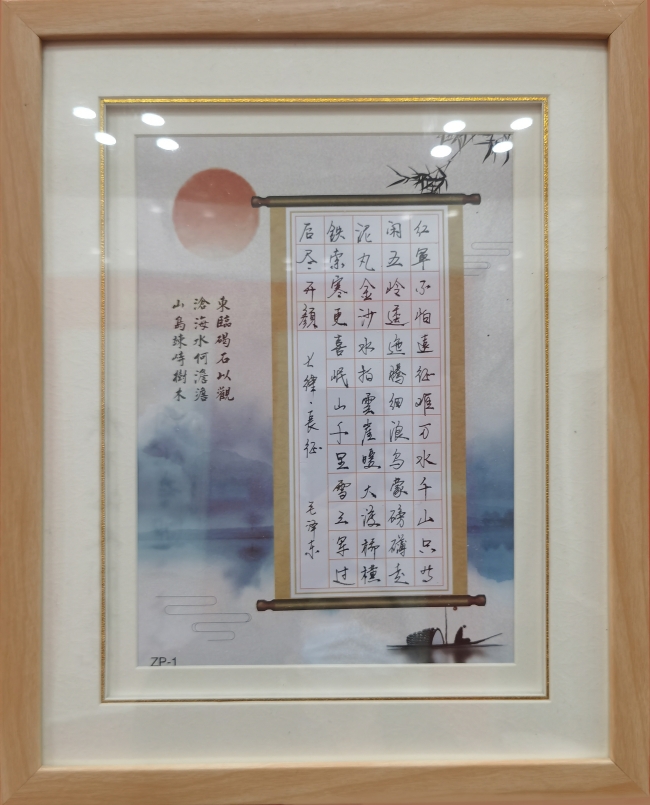 红軍不怕遠征难万水千山只等
闲五岭逶迤腾细浪乌蒙磅礴走
泥丸金沙水拍雲崖暖大渡桥横
鉄索寒更喜岷山千里雪三軍过
后尽开顔 七律·長征 毛泽东
東臨碣石以觀
滄海水何澹澹
山島竦峙樹木
ZP-1